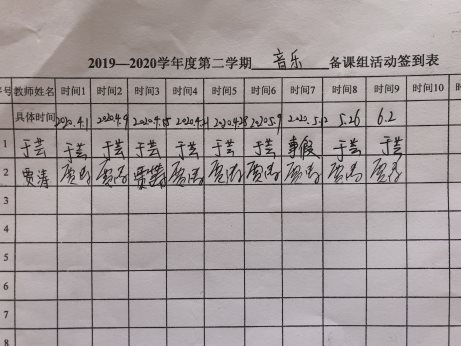 2019—2020学年度第二学期 音乐 备课组活动签到表
序号 教师姓名 时间1 时间2 时间3 时间4 时间5 时间6 时间7 时间8 时间9 时间10
具体时间 2020.4.1 2020.4.9 2020.4.15 2020.4.21 2020.4.28 2020.5.9 2020.5.12 5.26 6.2
1 于芸 于芸 于芸 于芸 于芸 于芸 于芸 事假 于芸 于芸
2 贾涛 贾涛 贾涛 贾涛 贾涛 贾涛 贾涛 贾涛 贾涛 贾涛
3
4
5
6
7
8